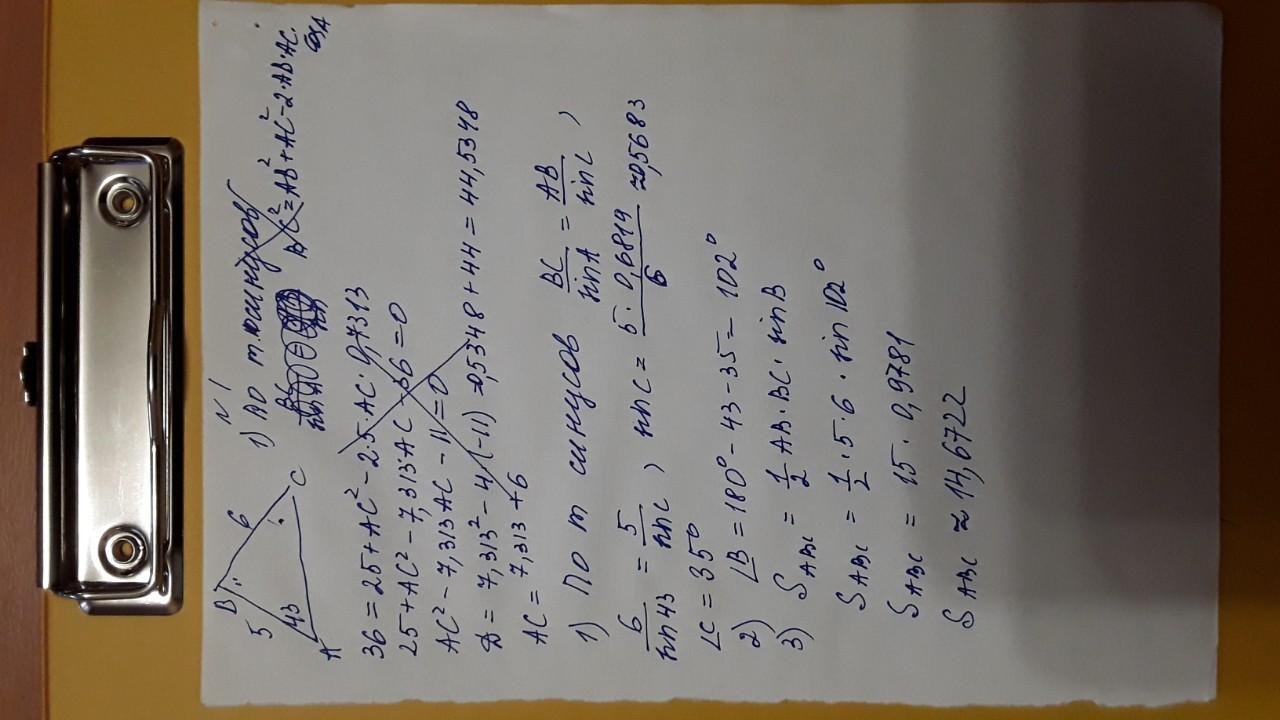 N 1
B
5
6
43
A
C
1) По т. косинусов
BC² = AB² + AC² - 2·AB·AC·
cosA
36 = 25 + AC² - 2·5·AC·0,7313
25 + AC² - 7,313AC - 36 = 0
AC² - 7,313AC - 11 = 0
D = 7,313² - 4·(-11) = 0,5348 + 44 = 44,5348
AC = 7,313 + 6
1) По т синусов BC/sinA = AB/sinC ;
6/sin43 = 5/sinC ; sinC = 5·0,6819/6 ≈ 0,5683
∠C = 35°
2) ∠B = 180° - 43 - 35 = 102°
3) S ABC = 1/2 AB·BC·sinB
S ABC = 1/2 ·5·6·sin102°
S ABC = 15·0,9781
S ABC ≈ 14,6722